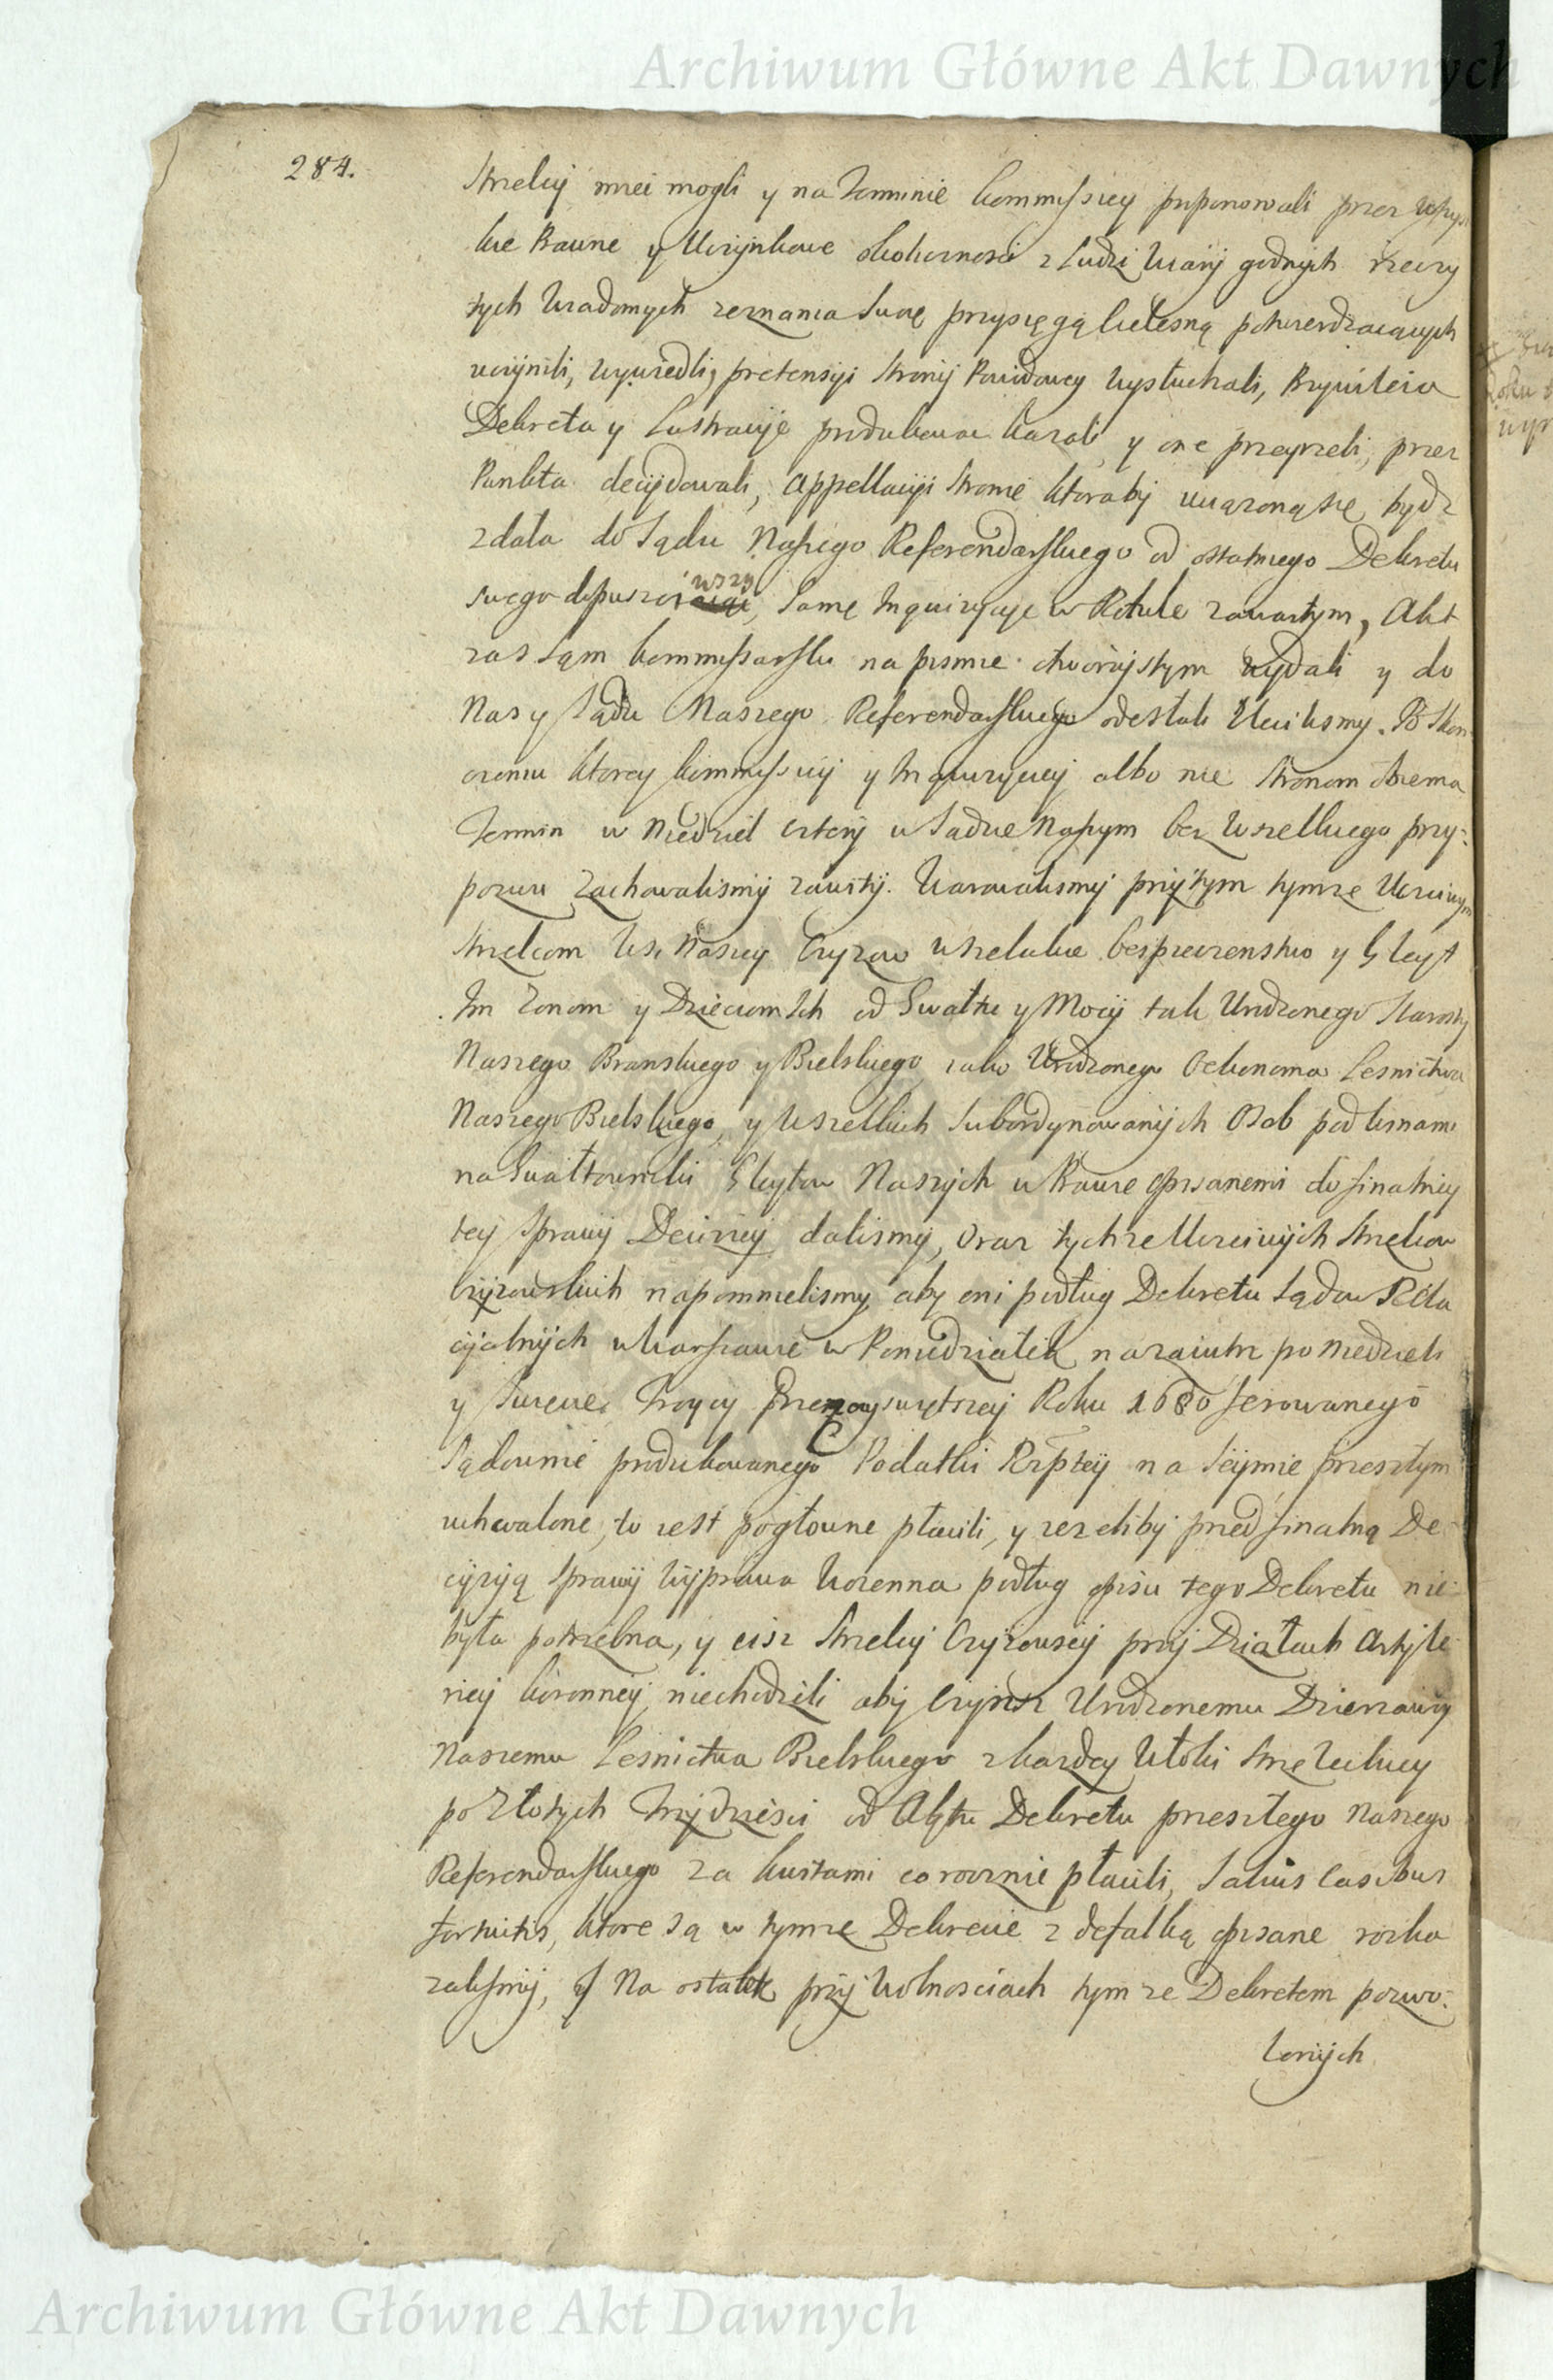 Archiwum Główne Akt Dawnych
284.
Strzelcy mieć mogli y na Terminie Kommissiey proponowali przez wszyst
kie Prawne y Uczynkowe okoliczności z Ludzi wiary godnych rzeczy
tych wiadomych zeznania swoie przysięgą cielesną potwierdzaiących
uczynili, wywiedli, pretensyi Strony Powodowey wysłuchali, Przywileia
Dekreta y Lustracyie produkować kazali y one przeyrzeli, przez
Punkta decydowali, Appellacyi Stronie ktoraby uciązoną się bydz
zdała do Sądu Naszego Referendarskiego od ostatniego Dekretu
swego dopuściwszy, Samę Inquizycyę w Rotule zawartym, Akt
zaś sąm Kommissarski na pismie otworzystym wydali y do
Nas y Sądu Naszego Referendarskiego odesłali Zleciliśmy. Po Skon
czeniu ktorey Kommissyi y Inquizycyi albo nie Stronom obiema
Termin w Niedziel cztery w Sądzie Naszym bez wszelkiego przy:
pozwu zachowalismy zawity. Warowalismy przytym tymze Uczciwym
Strzelcom wsi Naszey Czyzow wszelakie bespieczenstwo y Gleyt
Im Zonom y Dzieciom Ich od Gwałtu y Mocy tak Urodzonego Starosty
Naszego Branskiego y Bielskiego iako Urodzonego Oekonoma Lesnictwa
Naszego Bielskiego, y wszelkich Subordynowanych Osob pod winami
na Gwałtowniki Gleytow Naszych w Prawie opisanemi do finalney
tey Sprawy Decizyi dalismy, oraz tychze Uczciwych Strzelcow
Czyzowskich napomnielismy aby oni podług Dekretu Sądow Rela
cyalnych w Warszawie w Poniedziałek nazaiutrz po Niedzieli
y Swięcie Troycy Przenayswiętszey Roku 1680 ferowanego
Sądownie produkowanego Podatki Rzptey na Seymie przeszłym
uchwalone, to iest pogłowne płacili, y iezeliby przed finalną De
cyzyią sprawy wyprawa woienna podług opisu tego Dekretu nie
była potrzebna, y ciż Strzelcy Czyzowscy przy Działach Artyle
riey Koronney niechodzili aby Czynsz Urodzonemu Dzierzawcy
Naszemu Lesnictwa Bielskiego z kazdey Włoki Strzeleckiey
po Złotych Trzydziesci od Aktu Dekretu przeszłego Naszego
Referendarskiego za kwitami corocznie płacili, Salvis Casibus
fortuitis, ktore są w tymze Dekrecie z defalką opisane roska
zalismy, y Na ostatek przy Wolnosciach tym ze Dekretem pozwo:
lonych
Archiwum Główne Akt Dawnych